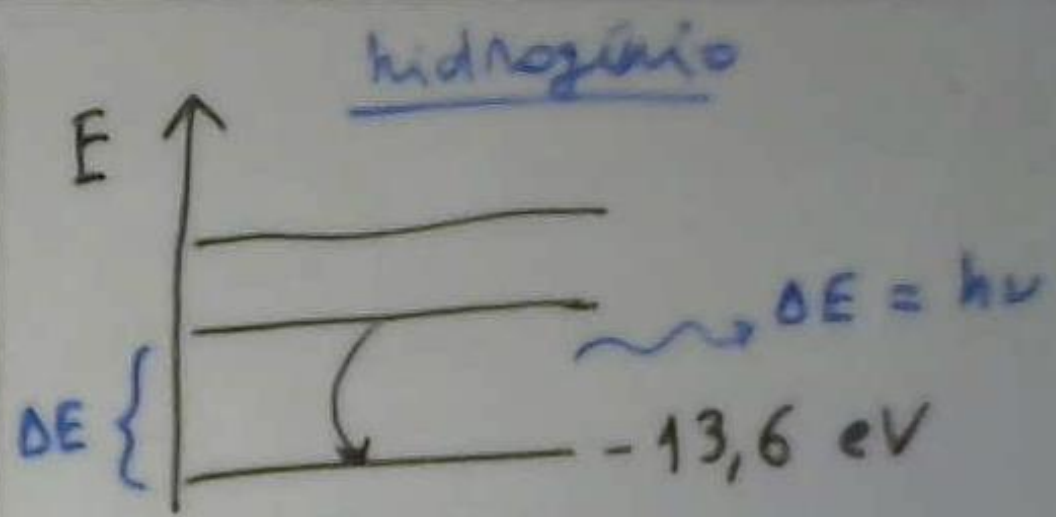 hidrogênio
E
ΔE = hν
ΔE
- 13,6 eV